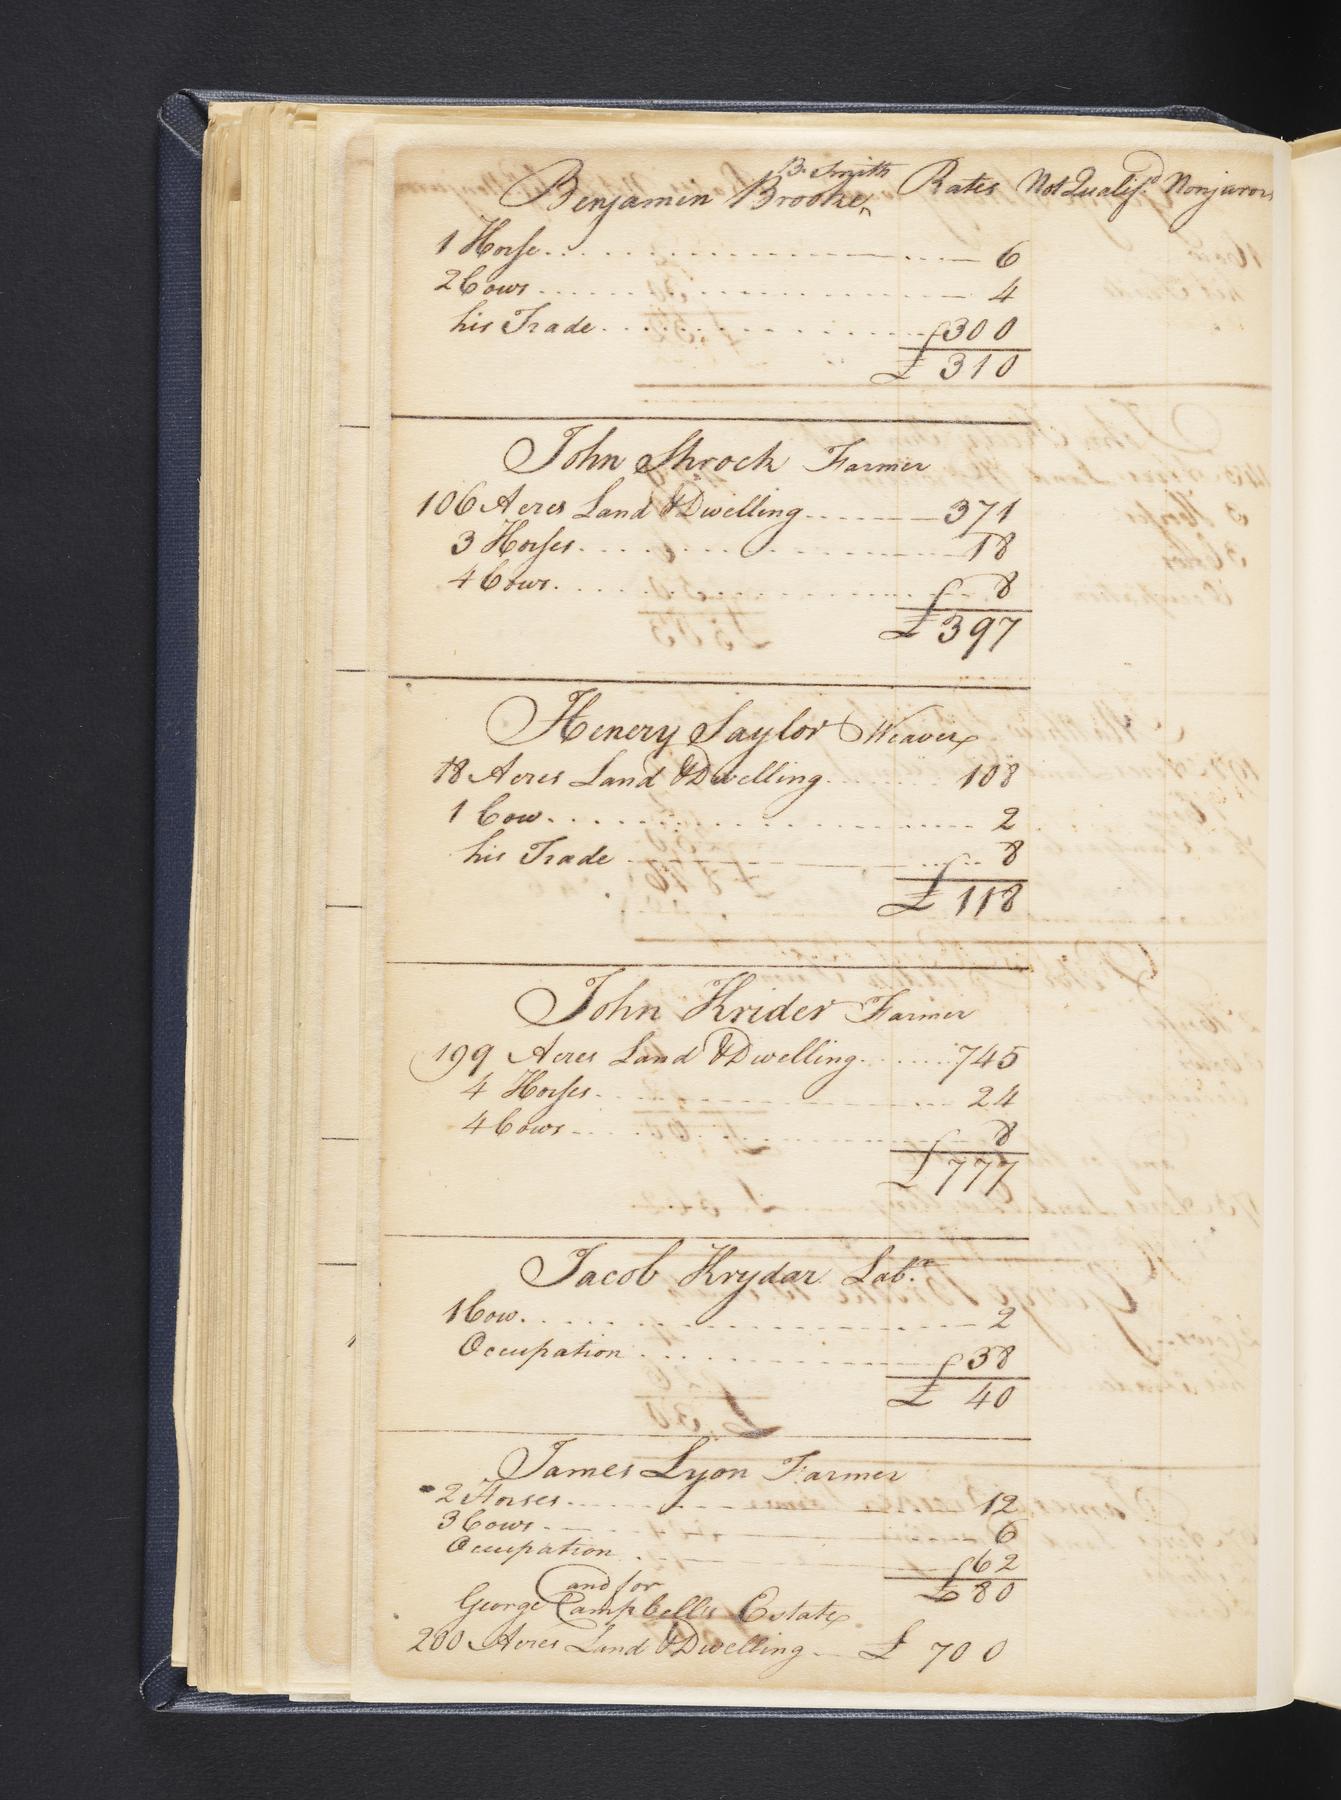 Benjamin Brooke B. Smith Rates Not Qualif.d Nonjurors
1 Horse 6
2 Cows 4
his Trade 300
£ 310
John Shrock Farmer
106 Acres Land & Dwelling 371
3 Horses 18
4 Cows 8
£ 397
Henery Saylor Weaver
18 Acres Land & Dwelling 108
1 Cow 2
his Trade 8
£ 118
John Krider Farmer
199 Acres Land & Dwelling 745
4 Horses 24
4 Cows 8
£ 777
Jacob Krydar Lab.r
1 Cow 2
Occupation 38
£ 40
James Lyon Farmer
2 Horses 12
3 Cows 6
Occupation 62
£ 80
and for
George Campbells Estate
200 Acres Land & Dwelling £ 700